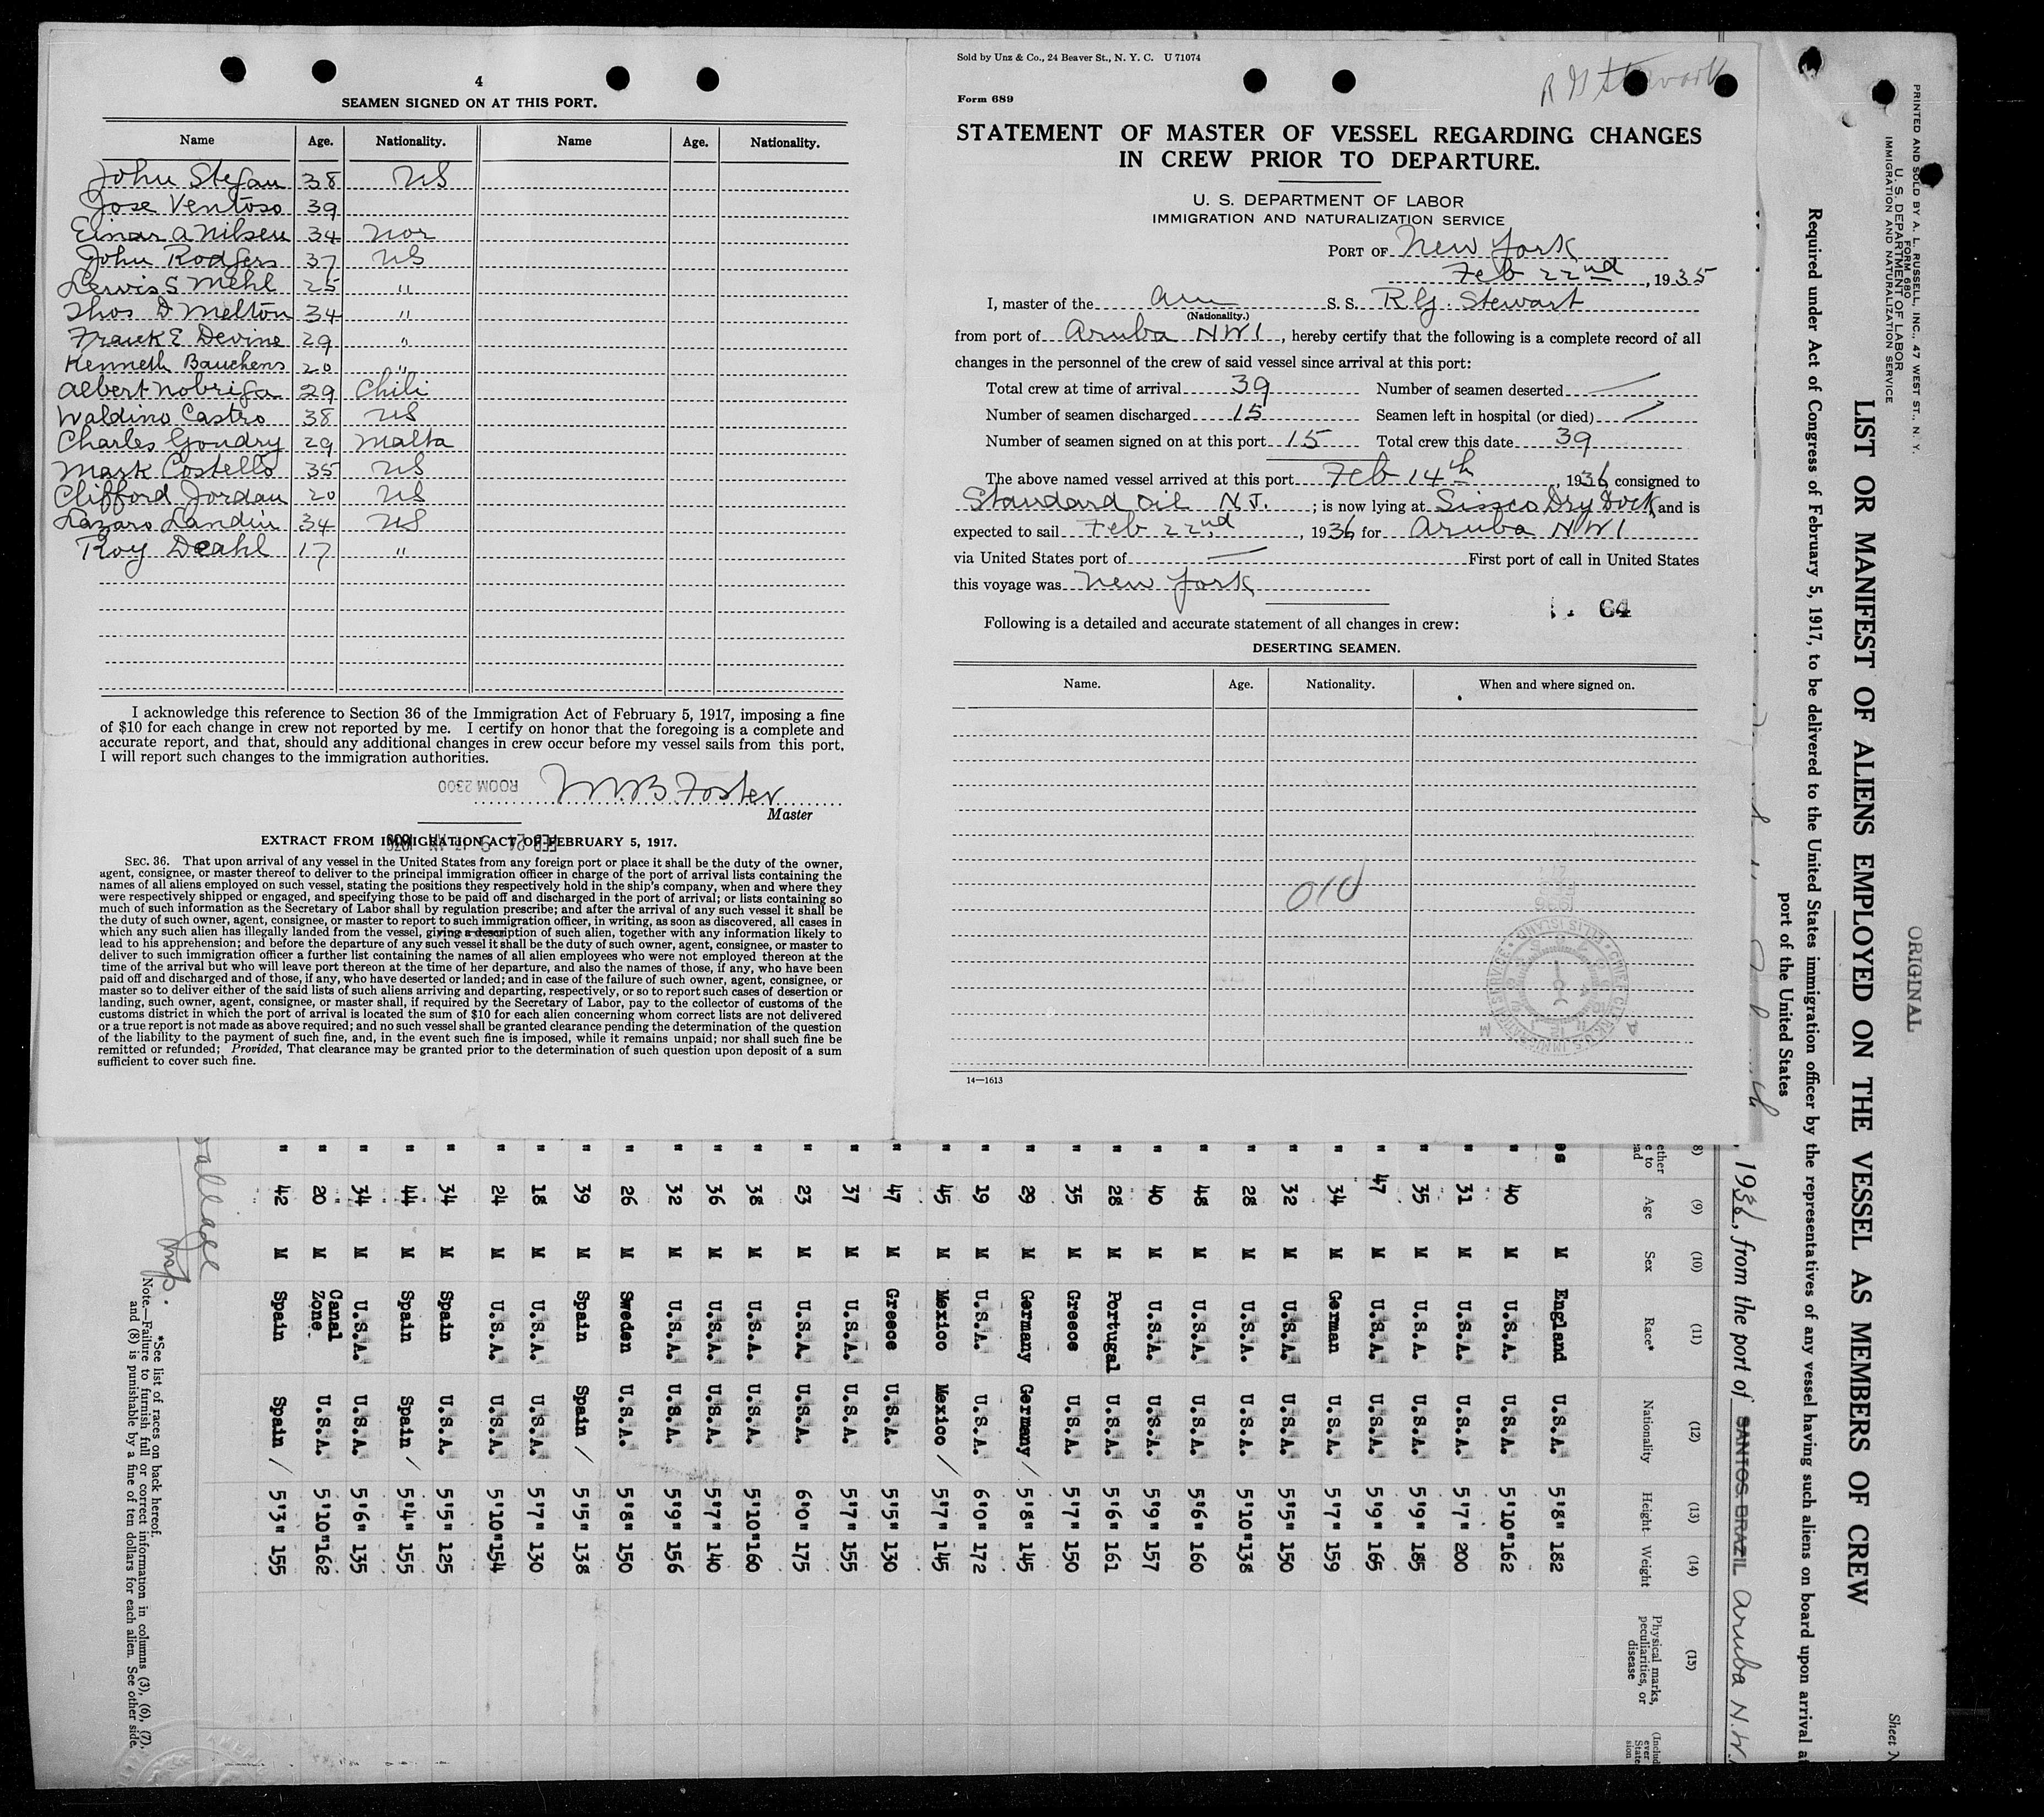 4
SEAMEN SIGNED ON AT THIS PORT.
Name Age. Nationality. Name Age. Nationality.
John Stefan 38 US
Jose Ventoso 39
Einar A Nilsen 34 Nor
John Rodgers 37 US
Lewis S Mehl 25 "
Thos D Melton 34 "
Frank E Devine 29 "
Kenneth Bauchens 20 "
Albert Nobriga 29 Chili
Waldino Castro 38 US
Charles Goudry 29 Malta
Mark Costello 35 US
Clifford Jordan 20 US
Lazaro Landin 34 US
Roy Deahl 17 "
I acknowledge this reference to Section 36 of the Immigration Act of February 5, 1917, imposing a fine
of $10 for each change in crew not reported by me. I certify on honor that the foregoing is a complete and
accurate report, and that, should any additional changes in crew occur before my vessel sails from this port,
I will report such changes to the immigration authorities.
ROOM 2300
M.B. Foster
Master
EXTRACT FROM IMMIGRATION ACT OF FEBRUARY 5, 1917.
SEC. 36. That upon arrival of any vessel in the United States from any foreign port or place it shall be the duty of the owner,
agent, consignee, or master thereof to deliver to the principal immigration officer in charge of the port of arrival lists containing the
names of all aliens employed on such vessel, stating the positions they respectively hold in the ship's company, when and where they
were respectively shipped or engaged, and specifying those to be paid off and discharged in the port of arrival; or lists containing so
much of such information as the Secretary of Labor shall by regulation prescribe; and after the arrival of any such vessel it shall be
the duty of such owner, agent, consignee, or master to report to such immigration officer, in writing, as soon as discovered, all cases in
which any such alien has illegally landed from the vessel, giving a description of such alien, together with any information likely to
lead to his apprehension; and before the departure of any such vessel it shall be the duty of such owner, agent, consignee, or master to
deliver to such immigration officer a further list containing the names of all alien employees who were not employed thereon at the
time of the arrival but who will leave port thereon at the time of her departure, and also the names of those, if any, who have been
paid off and discharged and of those, if any, who have deserted or landed; and in case of the failure of such owner, agent, consignee, or
master so to deliver either of the said lists of such aliens arriving and departing, respectively, or so to report such cases of desertion or
landing, such owner, agent, consignee, or master shall, if required by the Secretary of Labor, pay to the collector of customs of the
customs district in which the port of arrival is located the sum of $10 for each alien concerning whom correct lists are not delivered
or a true report is not made as above required; and no such vessel shall be granted clearance pending the determination of the question
of the liability to the payment of such fine, and, in the event such fine is imposed, while it remains unpaid; nor shall such fine be
remitted or refunded; Provided, That clearance may be granted prior to the determination of such question upon deposit of a sum
sufficient to cover such fine.
Sold by Unz & Co., 24 Beaver St., N. Y. C. U 71074
R G Stewart
Form 689
STATEMENT OF MASTER OF VESSEL REGARDING CHANGES
IN CREW PRIOR TO DEPARTURE.
U. S. DEPARTMENT OF LABOR
IMMIGRATION AND NATURALIZATION SERVICE
PORT OF New York
Feb 22nd, 1935
I, master of the Am S. S. R.G. Stewart
(Nationality.)
from port of Aruba NWI, hereby certify that the following is a complete record of all
changes in the personnel of the crew of said vessel since arrival at this port:
Total crew at time of arrival 39 Number of seamen deserted
Number of seamen discharged 15 Seamen left in hospital (or died)
Number of seamen signed on at this port 15 Total crew this date 39
The above named vessel arrived at this port Feb 14th, 1936, consigned to
Standard Oil N.J.; is now lying at Sissco Dry Dock, and is
expected to sail Feb 22nd, 1936 for Aruba NWI
via United States port of First port of call in United States
this voyage was New York
64
Following is a detailed and accurate statement of all changes in crew:
DESERTING SEAMEN.
Name. Age. Nationality. When and where signed on.
14—1613
PRINTED AND SOLD BY A. L. RUSSELL, INC., 47 WEST ST., N. Y.
FORM 680
U. S. DEPARTMENT OF LABOR
IMMIGRATION AND NATURALIZATION SERVICE
ORIGINAL
Sheet N
LIST OR MANIFEST OF ALIENS EMPLOYED ON THE VESSEL AS MEMBERS OF CREW
Required under Act of Congress of February 5, 1917, to be delivered to the United States immigration officer by the representatives of any vessel having such aliens on board upon arrival a
port of the United States
1936, from the port of SANTOS. BRAZIL Aruba N.W.
8) (9) (10) (11) (12) (13) (14) (15)
Age Sex Race* Nationality Height Weight Physical marks, peculiarities, or disease
es M England U.S.A. 5'8" 182
" 40 M U.S.A. U.S.A. 5'10" 162
" 31 M U.S.A. U.S.A. 5'7" 200
" 35 M U.S.A. U.S.A. 5'9" 185
" 47 M U.S.A. U.S.A. 5'9" 165
" 34 M German U.S.A. 5'7" 159
" 32 M U.S.A. U.S.A. 5'5" 150
" 28 M U.S.A. U.S.A. 5'10" 138
" 48 M U.S.A. U.S.A. 5'6" 160
" 40 M U.S.A. U.S.A. 5'9" 157
" 28 M Portugal U.S.A. 5'6" 161
" 35 M Greece U.S.A. 5'7" 150
" 29 M Germany Germany / 5'8" 145
" 19 M U.S.A. U.S.A. 6'0" 172
" 45 M Mexico Mexico / 5'7" 145
" 47 M Greece U.S.A. 5'5" 130
" 37 M U.S.A. U.S.A. 5'7" 155
" 23 M U.S.A. U.S.A. 6'0" 175
" 38 M U.S.A. U.S.A. 5'10" 160
" 36 M U.S.A. U.S.A. 5'7" 140
" 32 M U.S.A. U.S.A. 5'9" 156
" 26 M Sweden U.S.A. 5'8" 150
" 39 M Spain Spain / 5'5" 138
" 18 M U.S.A. U.S.A. 5'7" 130
" 24 M U.S.A. U.S.A. 5'10" 154
" 34 M Spain U.S.A. 5'5" 125
" 44 M Spain Spain / 5'4" 155
" 34 M U.S.A. U.S.A. 5'6" 135
" 20 M Canal Zone. U.S.A. 5'10" 162
" 42 M Spain Spain / 5'3" 155
Insp.
*See list of races on back hereof.
Note.—Failure to furnish full or correct information in columns (3), (6), (7),
and (8) is punishable by a fine of ten dollars for each alien. See other side.